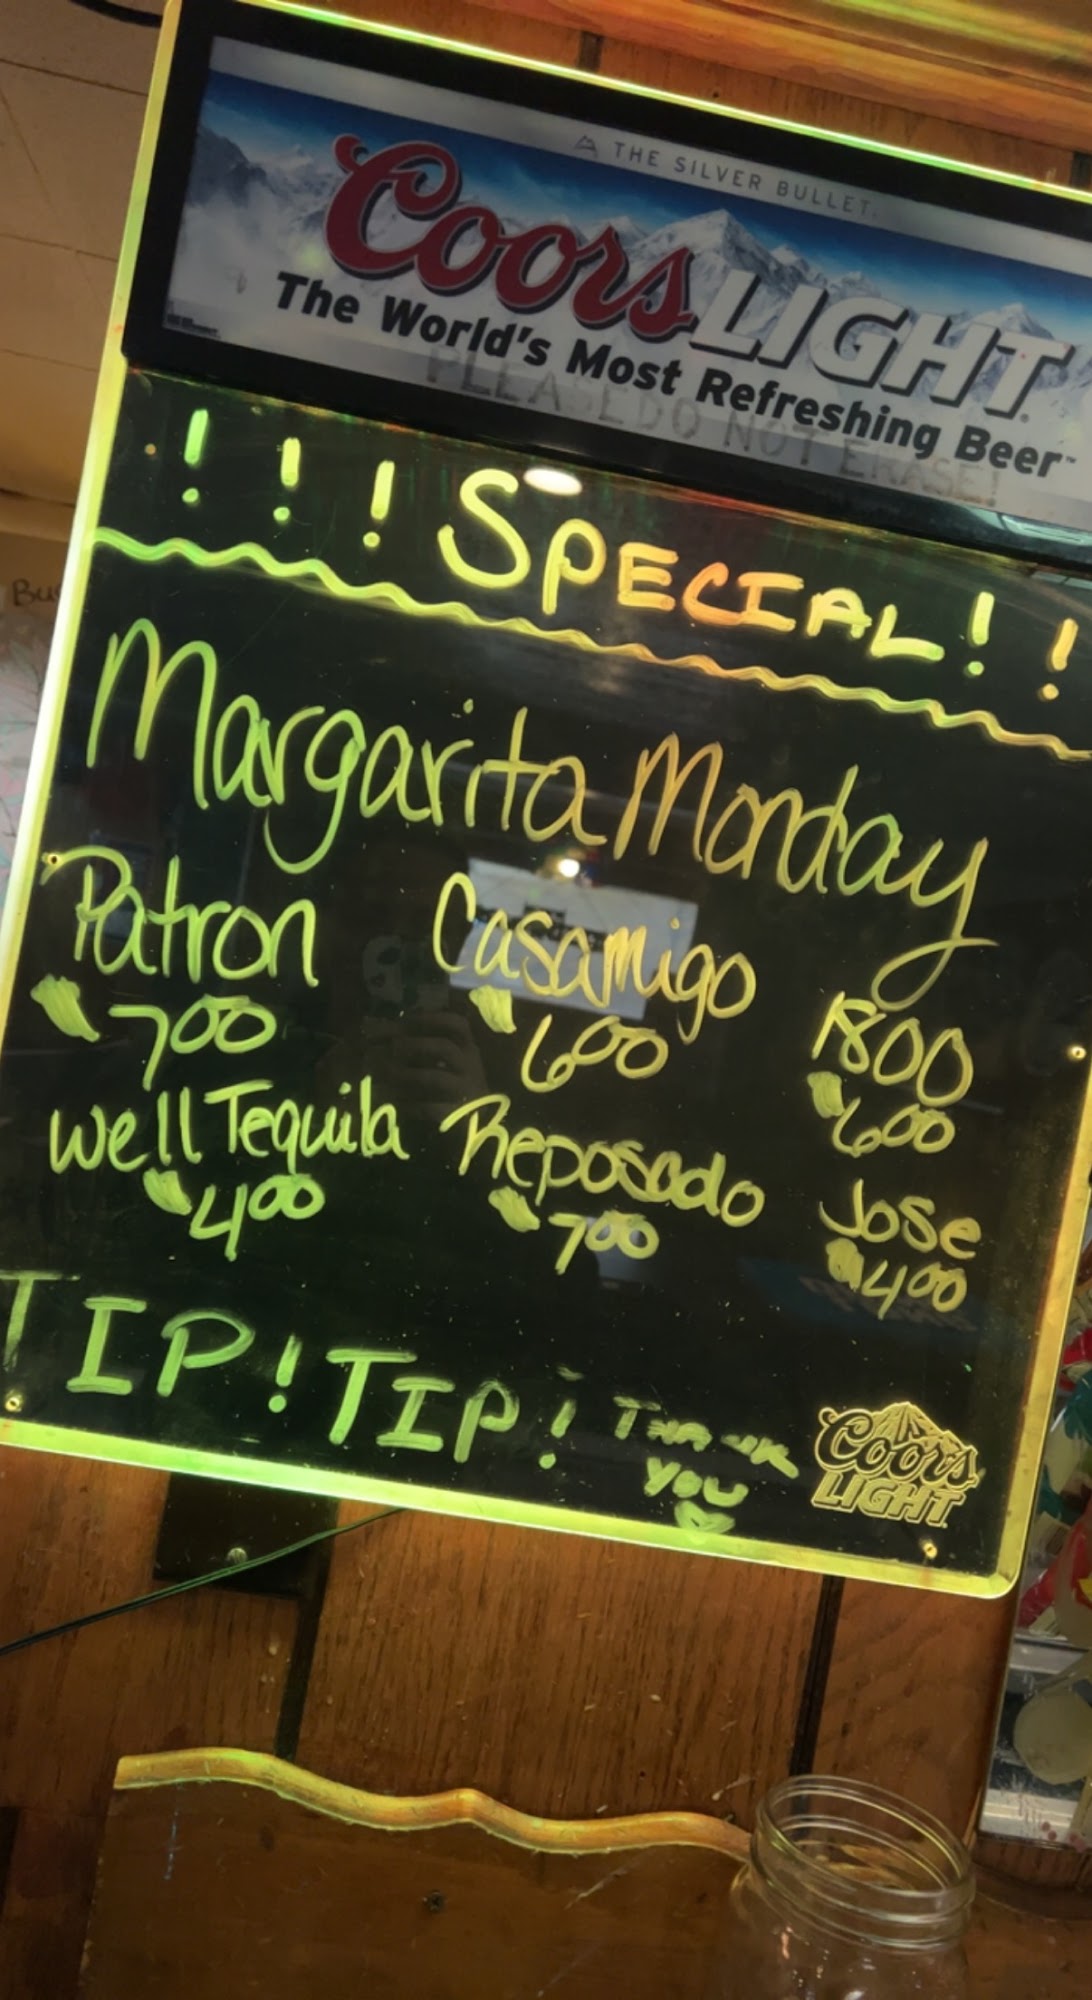 THE SILVER BULLET.
Coors LIGHT
The World's Most Refreshing Beer™
PLEASE DO NOT ERASE!
!!! SPECIAL!!
Margarita Monday
Patron Casamigo 1800
700 600 600
Well Tequila Reposado Jose
400 700 400
TIP! TIP! THANK
YOU
Coors
LIGHT